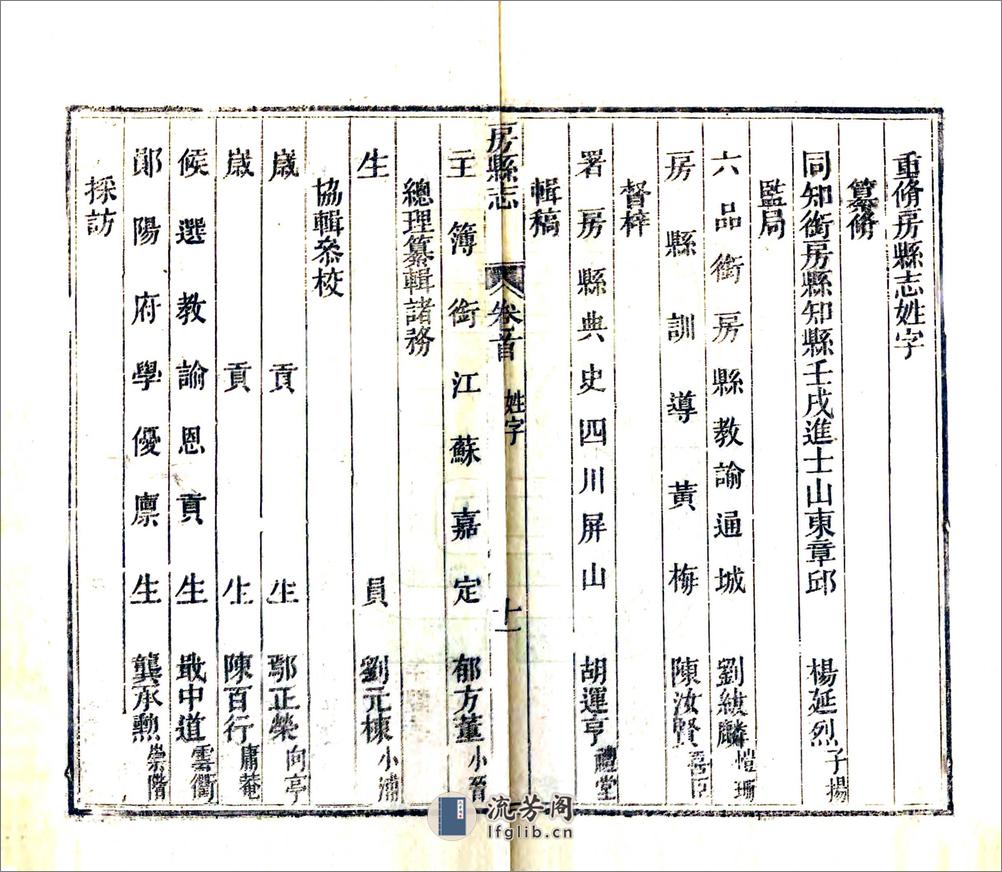 重脩房縣志姓字
纂脩
同知銜房縣知縣壬戌進士山東章邱 楊延烈 子揚
監局
六品銜房縣教諭通城 劉綍麟 愷珊
房縣訓導黃梅 陳汝賢 善臣
督梓
署房縣典史四川屏山 胡運亨 禮堂
輯稿
房縣志 卷首 姓字 十一
主簿銜江蘇嘉定 郁方董 小晉
總理纂輯諸務
生員 劉元棟 小浦
協輯叅校
歲貢生 鄢正榮 向亭
歲貢生 陳百行 庸菴
候選教諭恩貢生 戢中道 雲衢
鄖陽府學優廩生 龔承勲 崇階
採訪
流芳阁
lfglib.cn